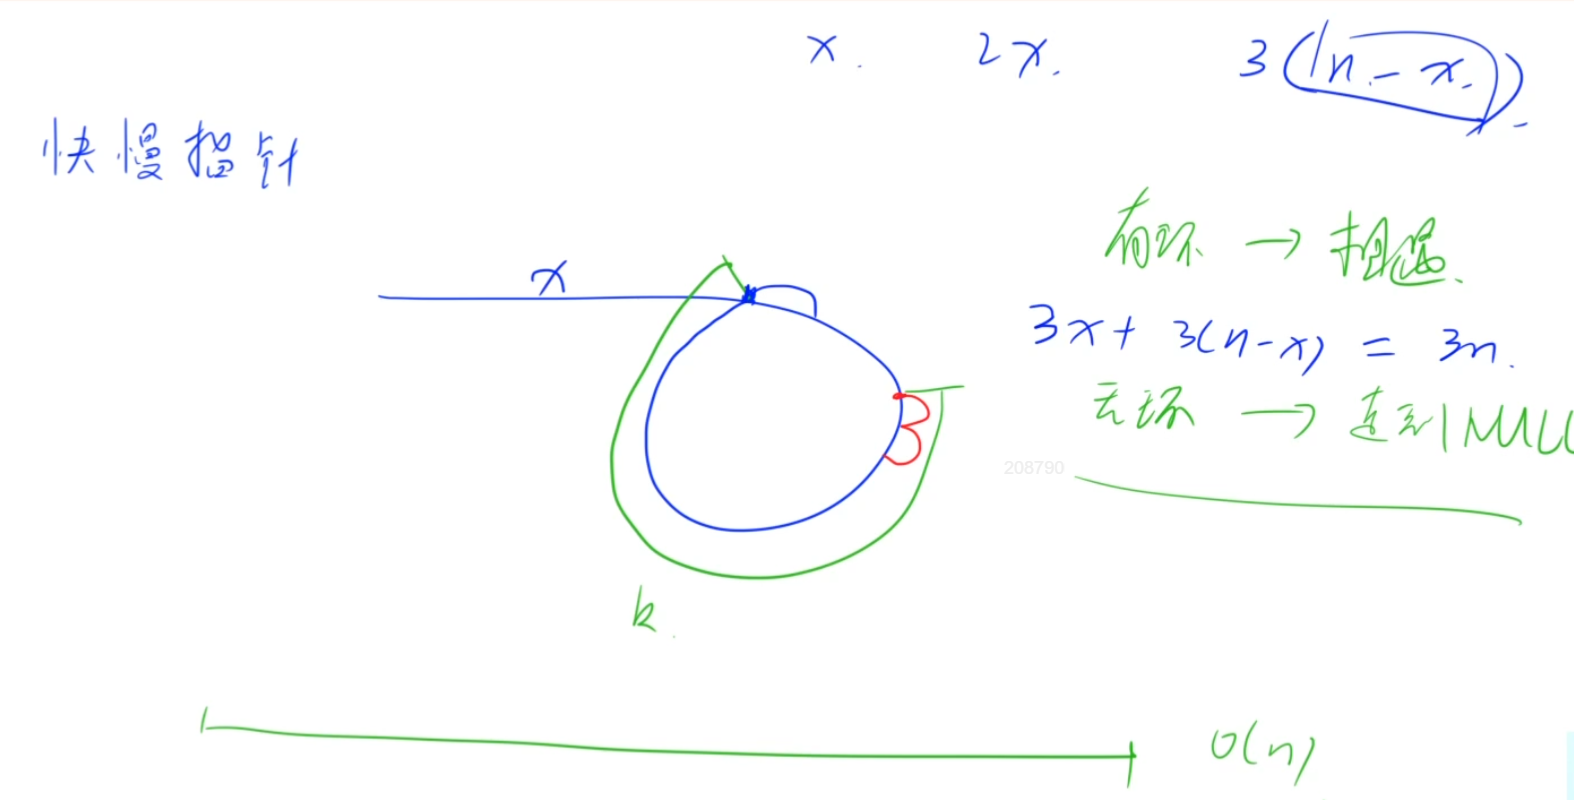 x. 2x. 3(n-x).
快慢指针
有环 → 相遇.
x
3x+ 3(n-x) = 3n.
无环 → 走到NULL
208790
k.
O(n)